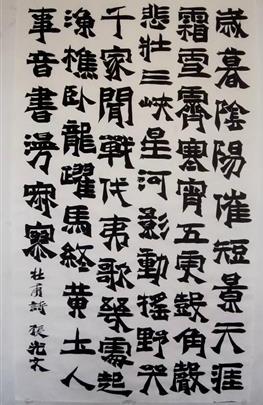 歲暮陰陽催短景天涯
霜雪霽寒宵五更鼓角聲
悲壯三峽星河影動搖野哭
千家聞戰伐夷歌幾處起
漁樵臥龍躍馬終黃土人
事音書漫寂寥
杜甫詩